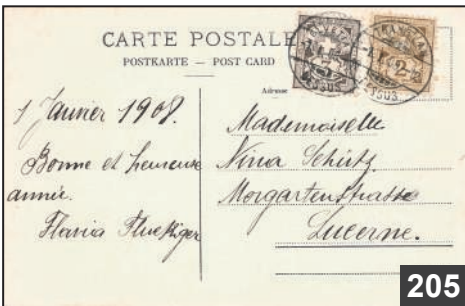 CARTE POSTALE
POSTKARTE — POST CARD
Adresse
1 Janvier 1908.
Bonne et heureuse
année.
Flavia Fluckiger
Mademoiselle
Nina Schütz
Morgartenstrasse
Lucerne.
205